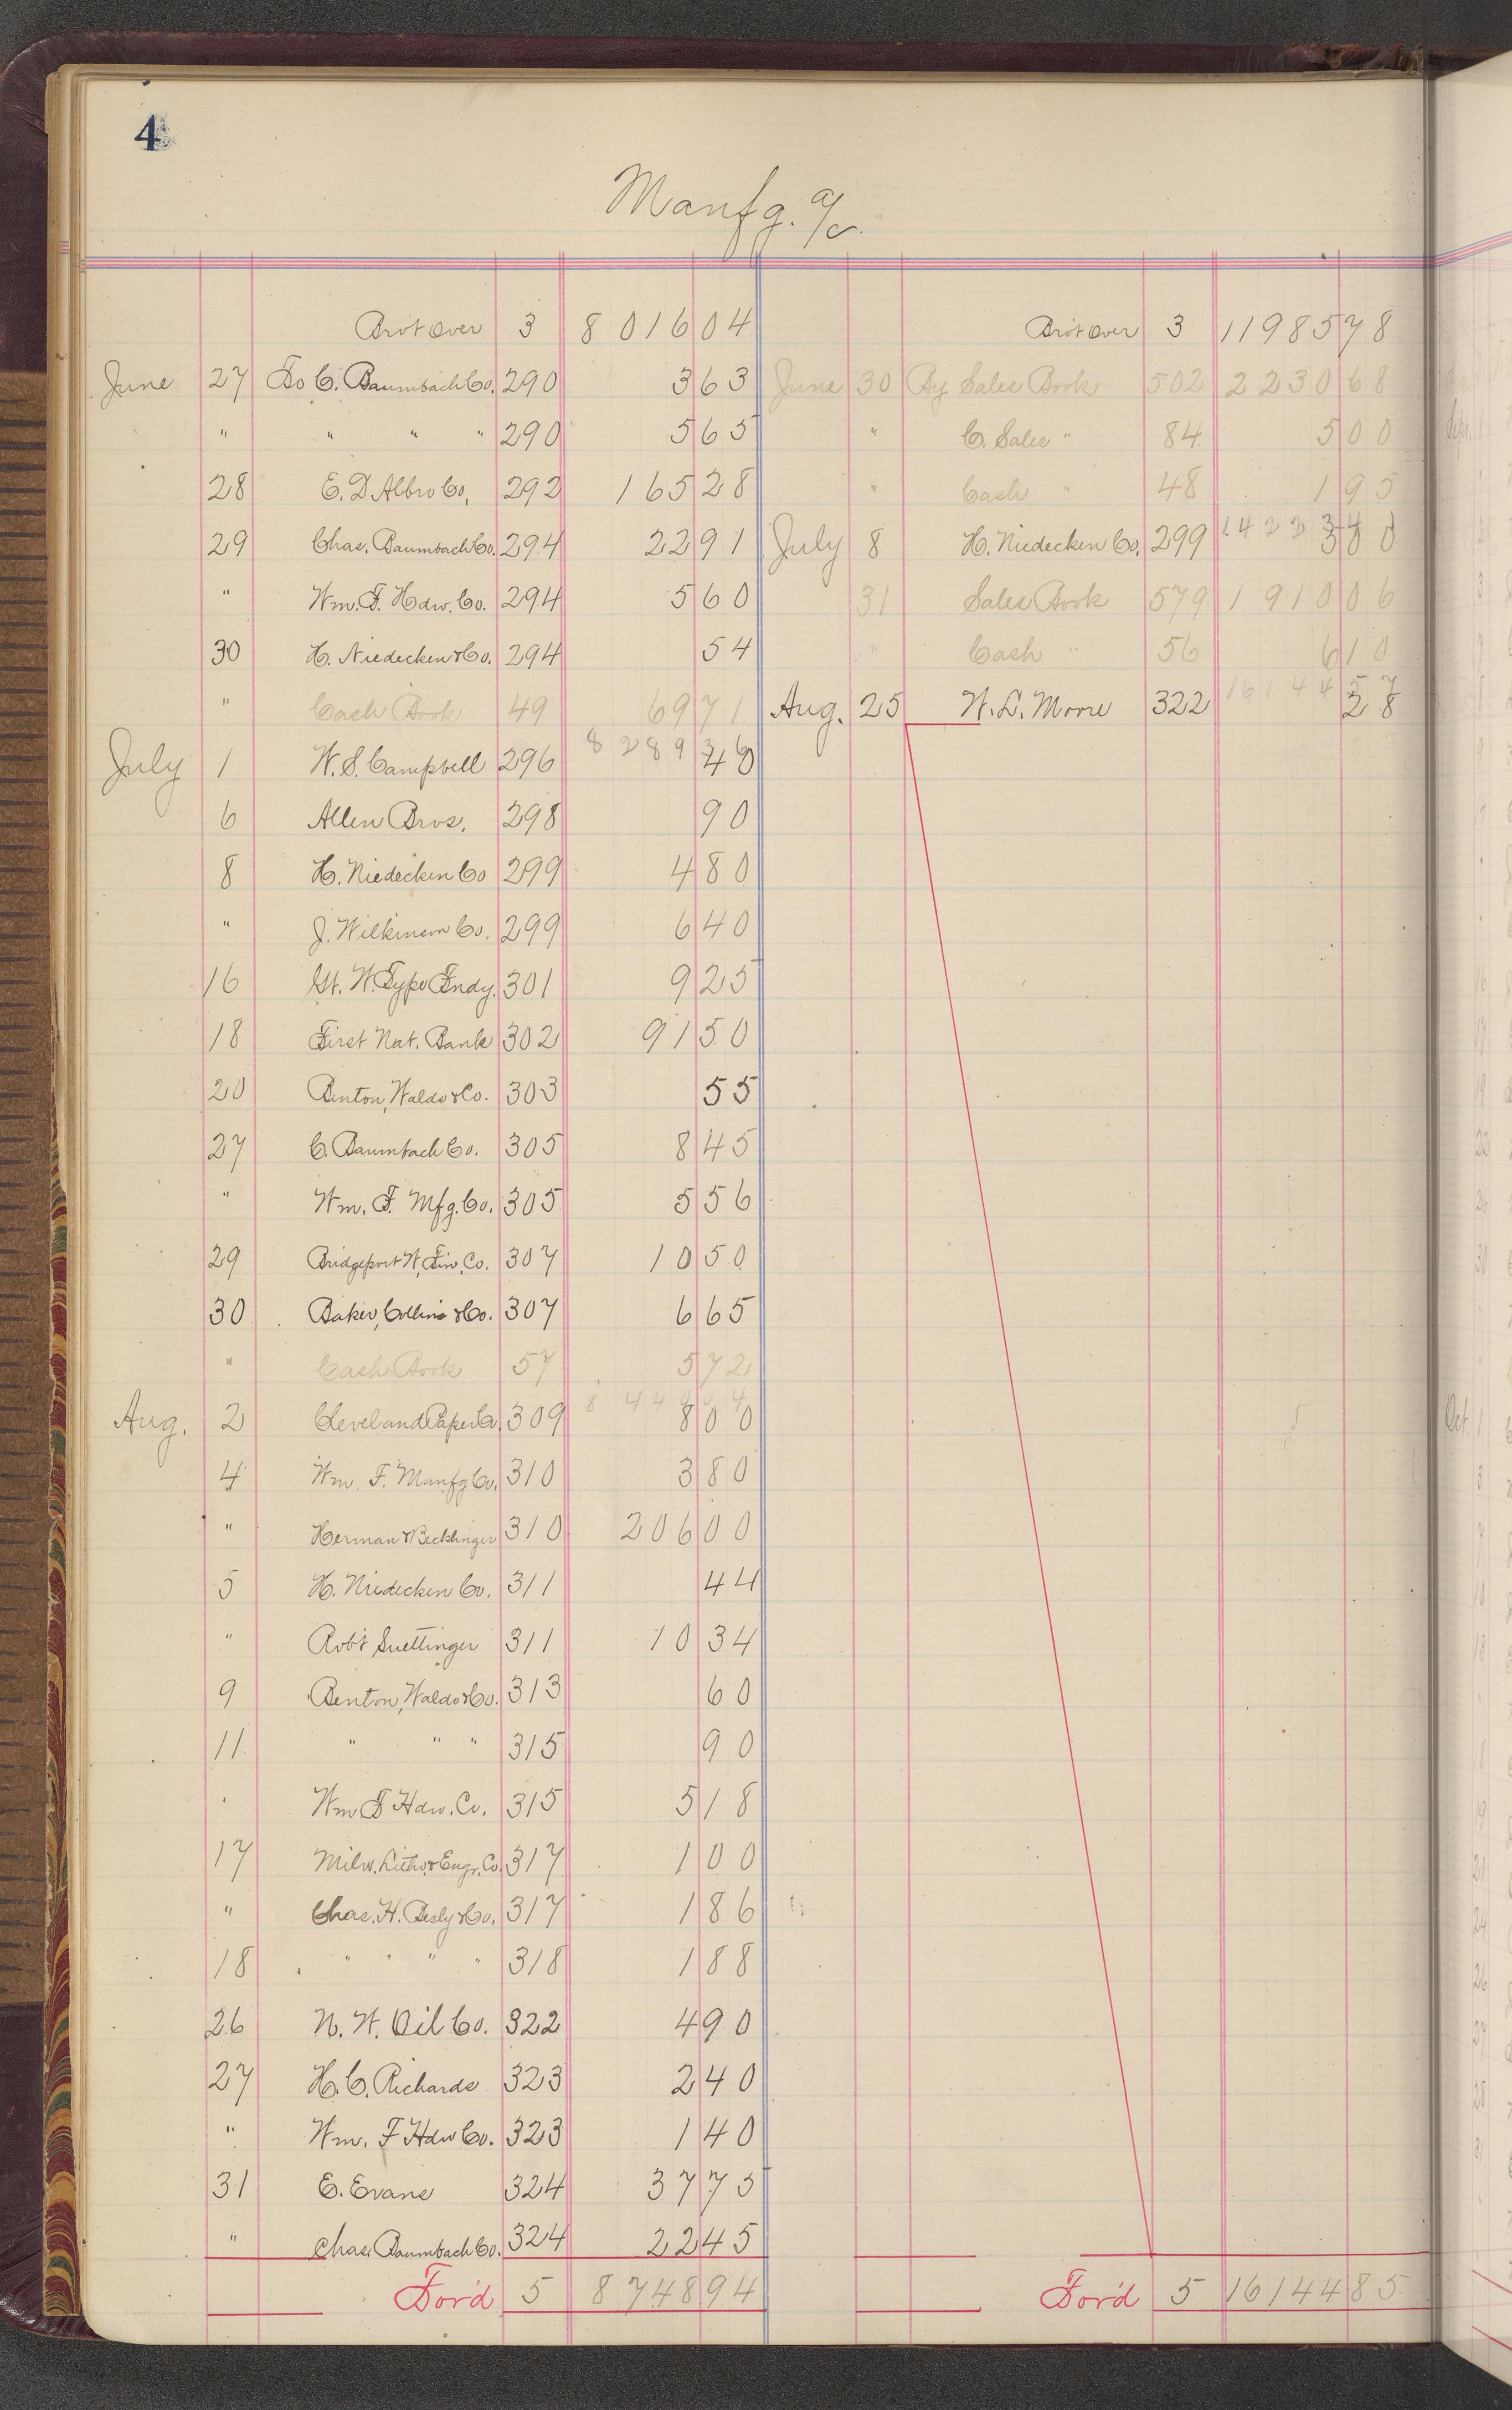 4
Manfg. a/c.
Brot Over 3 8016 04
June 27 To C. Baumbach Co. 290 3 63
" " " " 290 5 65
28 E. D. Albro Co, 292 165 28
29 Chas. Baumbach Co. 294 22 91
" Wm. F. Hdw. Co. 294 5 60
30 H. Niedecken & Co. 294 54
" Cash Book 49 69 71
8289 36
July 1 W. S. Campbell 296 40
6 Allen Bros. 298 90
8 H. Niedecken Co 299 4 80
" J. Wilkinson Co. 299 6 40
16 Gt. W. Type Fndy. 301 9 25
18 First Nat. Bank 302 91 50
20 Benton, Waldo & Co. 303 55
27 C. Baumbach Co. 305 8 45
" Wm. F. Mfg. Co. 305 5 56
29 Bridgeport W. Fin. Co. 307 10 50
30 Baker, Collins & Co. 307 6 65
" Cash Book 57 5 72
Aug. 2 Cleveland Paper Co. 309 8 00
4 Wm. F. Manfg Co. 310 3 80
" Herman & Becklinger 310 206 00
5 H. Niedecken Co. 311 44
" Rob't Suettinger 311 10 34
9 Benton, Waldo & Co. 313 60
11 " " " 315 90
Wm F Hdw. Co. 315 5 18
17 Milw. Litho. & Engr. Co. 317 1 00
" Chas. H. Besly & Co. 317 1 86
18 " " " " 318 1 88
26 N. W. Oil Co. 322 4 90
27 H. C. Richards 323 2 40
" Wm. F Hdw Co. 323 1 40
31 E. Evans 324 37 75
" Chas. Baumbach Co. 324 22 45
For'd 5 8748 94
Brot Over 3 11985 78
June 30 By Sales Book 502 2230 68
" C. Sales " 84 5 00
" Cash " 48 1 95
July 8 H. Niedecken Co. 299 3 00
31 Sales Book 579 1910 06
" Cash " 56 6 10
16144 57
Aug. 25 W. L. Moore 322 28
For'd 5 16144 85